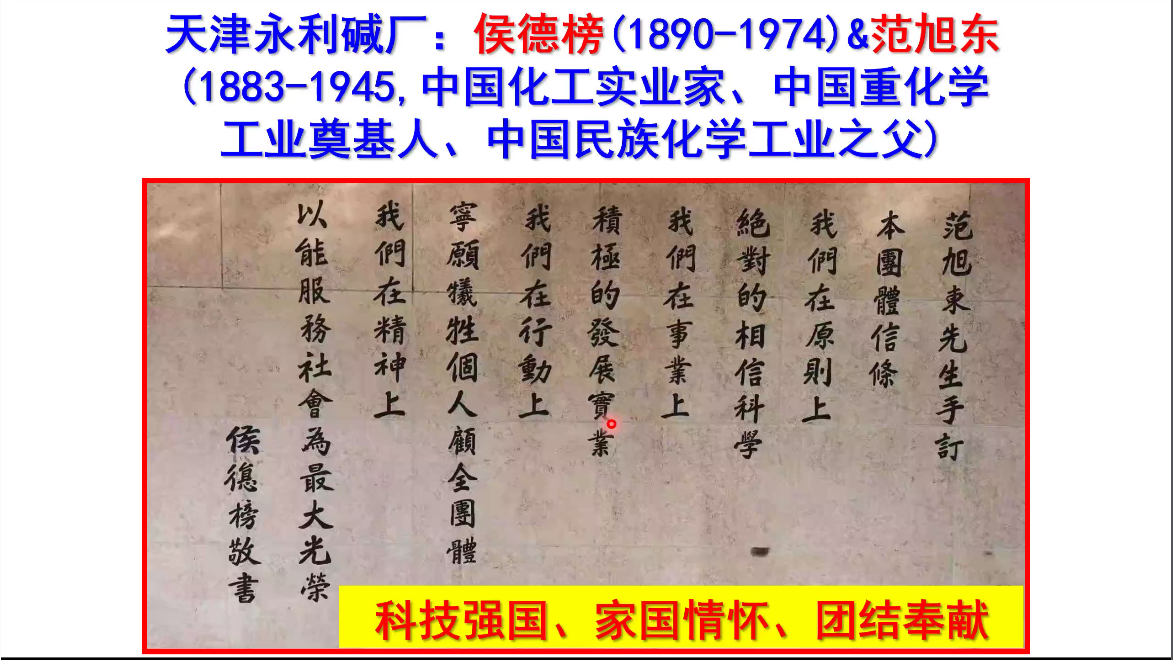 天津永利碱厂：侯德榜(1890-1974)&范旭东
(1883-1945,中国化工实业家、中国重化学
工业奠基人、中国民族化学工业之父)
范旭東先生手訂
本團體信條
我們在原則上
絕對的相信科學
我們在事業上
積極的發展實業
我們在行動上
寧願犧牲個人顧全團體
我們在精神上
以能服務社會為最大光榮
侯德榜敬書
科技强国、家国情怀、团结奉献